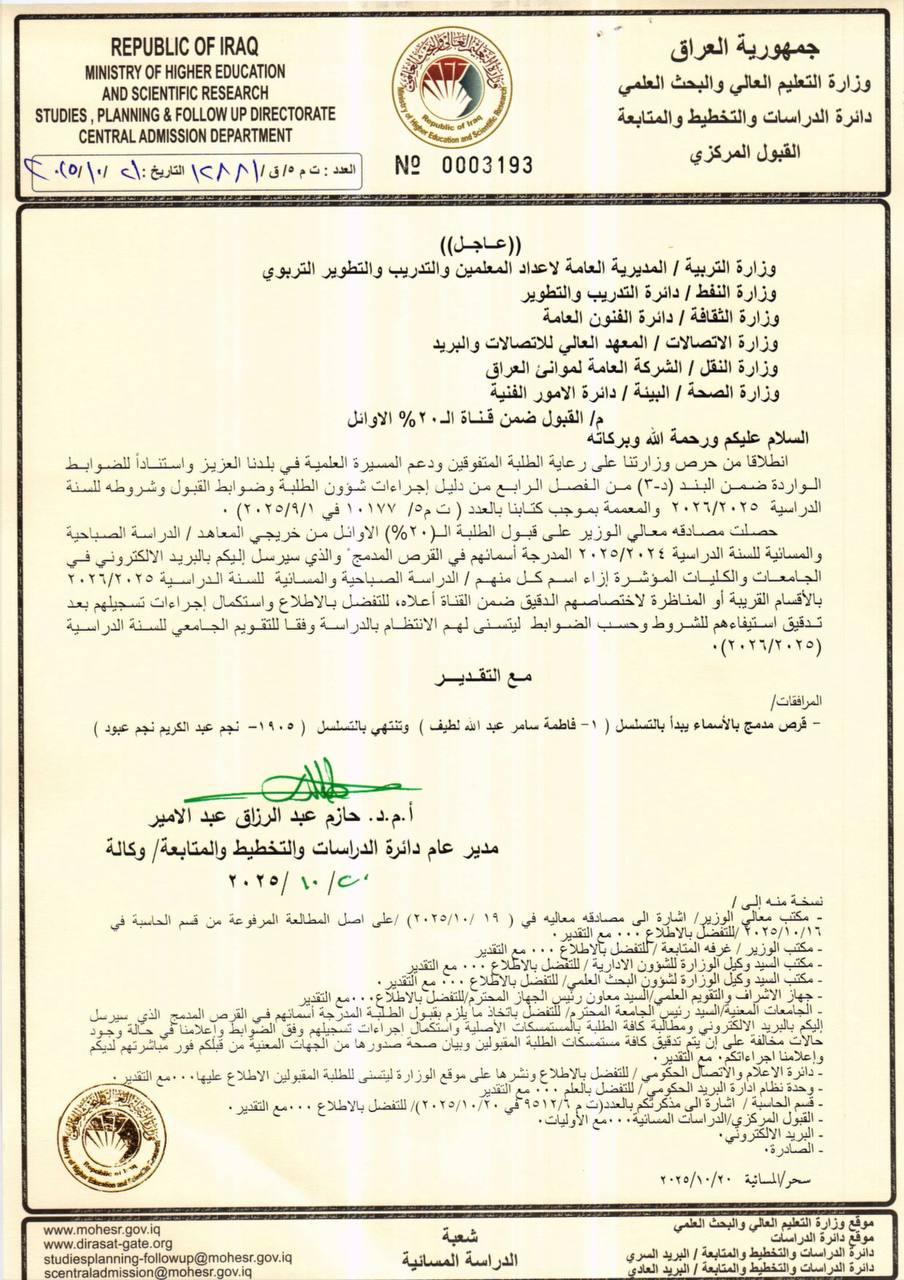 REPUBLIC OF IRAQ
MINISTRY OF HIGHER EDUCATION
AND SCIENTIFIC RESEARCH
STUDIES , PLANNING & FOLLOW UP DIRECTORATE
CENTRAL ADMISSION DEPARTMENT
Ministry of Higher Education and Scientific Research
Republic of Iraq
Nº 0003193
جمهورية العراق
وزارة التعليم العالي والبحث العلمي
دائرة الدراسات والتخطيط والمتابعة
القبول المركزي
العدد : ت م ٥/ق /١٢٨٨١ التاريخ: ٢١/ ١٠/ ٢٠٢٥
((عـاجـل))
وزارة التربية / المديرية العامة لاعداد المعلمين والتدريب والتطوير التربوي
وزارة النفط / دائرة التدريب والتطوير
وزارة الثقافة / دائرة الفنون العامة
وزارة الاتصالات / المعهد العالي للاتصالات والبريد
وزارة النقل / الشركة العامة لموانئ العراق
وزارة الصحة / البيئة / دائرة الامور الفنية
م/ القبول ضمن قناة الـ٢٠% الاوائل
السلام عليكم ورحمة الله وبركاته
انطلاقا من حرص وزارتنا على رعاية الطلبة المتفوقين ودعم المسيرة العلمية في بلدنا العزيز واستناداً للضوابط
الواردة ضمن البند (د-٣) من الفصل الرابع من دليل إجراءات شؤون الطلبة وضوابط القبول وشروطه للسنة
الدراسية ٢٠٢٦/٢٠٢٥ والمعممة بموجب كتابنا بالعدد ( ت م٥/ ١٠١٧٧ في ٢٠٢٥/٩/١) .
حصلت مصادقه معالي الوزير على قبول الطلبة الـ(٢٠%) الاوائل من خريجي المعاهد / الدراسة الصباحية
والمسائية للسنة الدراسية ٢٠٢٥/٢٠٢٤ المدرجة أسمائهم في القرص المدمج والذي سيرسل إليكم بالبريد الالكتروني في
الجامعات والكليات المؤشرة إزاء اسم كل منهم / الدراسة الصباحية والمسائية للسنة الدراسية ٢٠٢٦/٢٠٢٥
بالأقسام القريبة أو المناظرة لاختصاصهم الدقيق ضمن القناة أعلاه، للتفضل بالاطلاع واستكمال إجراءات تسجيلهم بعد
تدقيق استيفاءهم للشروط وحسب الضوابط ليتسنى لهم الانتظام بالدراسة وفقا للتقويم الجامعي للسنة الدراسية
(٢٠٢٦/٢٠٢٥).
مع التقديـر
المرافقات/
- قرص مدمج بالأسماء يبدأ بالتسلسل ( ١- فاطمة سامر عبد الله لطيف ) وتنتهي بالتسلسل ( ١٩٠٥- نجم عبد الكريم نجم عبود )
أ.م.د. حازم عبد الرزاق عبد الامير
مدير عام دائرة الدراسات والتخطيط والمتابعة/ وكالة
٢٠/ ١٠/ ٢٠٢٥
نسخة منه إلى /
- مكتب معالي الوزير/ اشارة الى مصادقه معاليه في ( ١٩ /٢٠٢٥/١٠) /على اصل المطالعة المرفوعة من قسم الحاسبة في
٢٠٢٥/١٠/١٦ /للتفضل بالاطلاع ٠٠٠ مع التقدير.
- مكتب الوزير / غرفه المتابعة / للتفضل بالاطلاع ٠٠٠ مع التقدير
- مكتب السيد وكيل الوزارة للشؤون الادارية / للتفضل بالاطلاع ٠٠٠ مع التقدير
- مكتب السيد وكيل الوزارة لشؤون البحث العلمي/ للتفضل بالاطلاع ٠٠٠ مع التقدير.
- جهاز الاشراف والتقويم العلمي/السيد معاون رئيس الجهاز المحترم/للتفضل بالاطلاع٠٠٠مع التقدير
- الجامعات المعنية/السيد رئيس الجامعة المحترم/ للتفضل باتخاذ ما يلزم بقبول الطلبة المدرجة أسمائهم في القرص المدمج الذي سيرسل
إليكم بالبريد الالكتروني ومطالبة كافة الطلبة بالمستمسكات الأصلية واستكمال إجراءات تسجيلهم وفق الضوابط وإعلامنا في حالة وجود
حالات مخالفة على إن يتم تدقيق كافة مستمسكات الطلبة المقبولين وبيان صحة صدورها من الجهات المعنية من قبلكم فور مباشرتهم لديكم
وإعلامنا اجراءاتكم. مع التقدير.
- دائرة الاعلام والاتصال الحكومي / للتفضل بالاطلاع ونشرها على موقع الوزارة ليتسنى للطلبة المقبولين الاطلاع عليها٠٠٠مع التقدير.
- وحدة نظام ادارة البريد الحكومي / للتفضل بالعلم ٠٠٠ مع التقدير
- قسم الحاسبة / اشارة الى مذكرتكم بالعدد(ت م ٩٥١٢/٦ في ٢٠٢٥/١٠/٢٠)/ للتفضل بالاطلاع ٠٠٠مع التقدير.
- القبول المركزي/الدراسات المسائية٠٠٠مع الأوليات.
- البريد الالكتروني.
- الصادرة.
سحر/المسائية ٢٠٢٥/١٠/٢٠
www.mohesr.gov.iq
www.dirasat-gate.org
studiesplanning-followup@mohesr.gov.iq
scentraladmission@mohesr.gov.iq
شعبة
الدراسة المسائية
موقع وزارة التعليم العالي والبحث العلمي
موقع دائرة الدراسات
دائرة الدراسات والتخطيط والمتابعة / البريد السري
دائرة الدراسات والتخطيط والمتابعة / البريد العادي